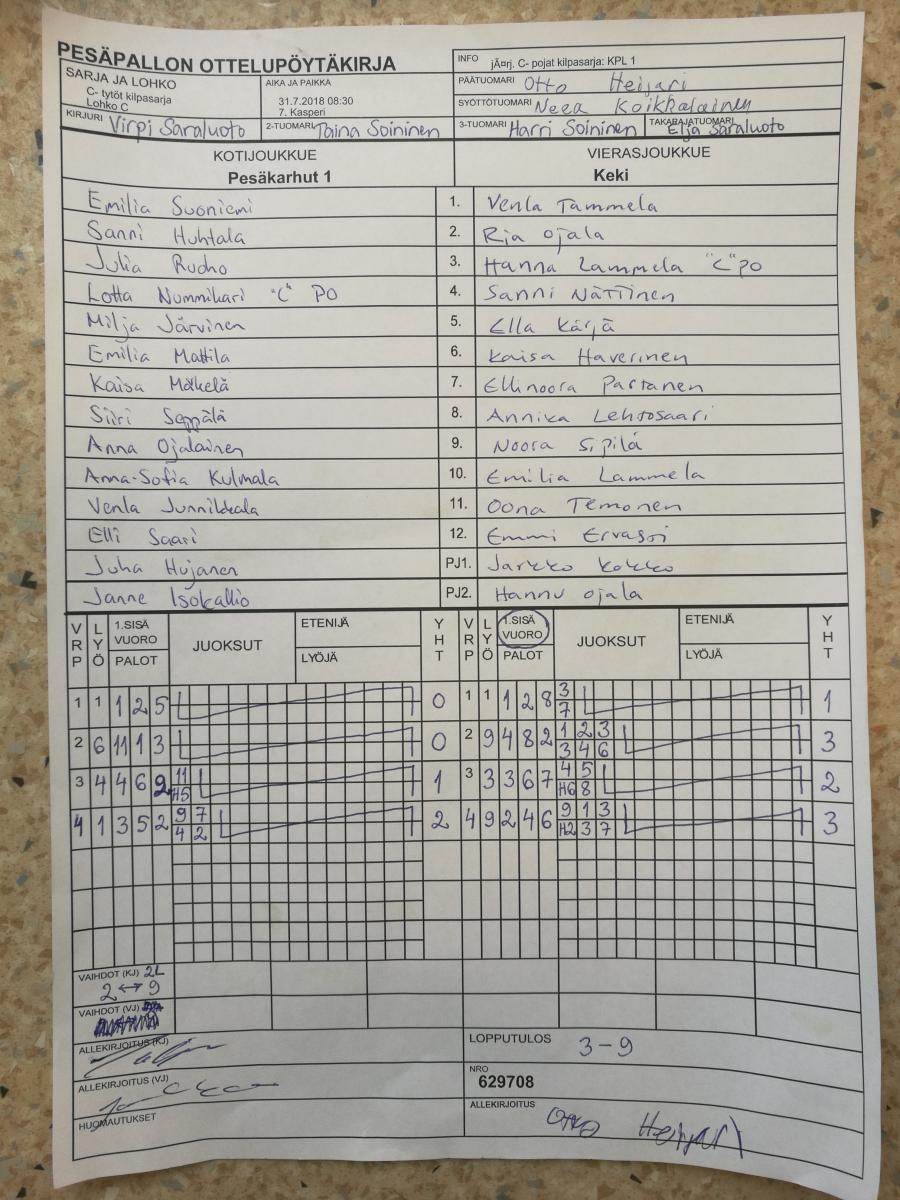 PESÄPALLON OTTELUPÖYTÄKIRJA
INFO jÃ¤rj. C- pojat kilpasarja: KPL 1
SARJA JA LOHKO
C- tytöt kilpasarja
Lohko C
AIKA JA PAIKKA
31.7.2018 08:30
7. Kasperi
PÄÄTUOMARI Otto Heijari
SYÖTTÖTUOMARI Neea Koikkalainen
KIRJURI Virpi Saraluoto
2-TUOMARI Taina Soininen
3-TUOMARI Harri Soininen
TAKARAJATUOMARI Eija Saraluoto
KOTIJOUKKUE VIERASJOUKKUE
Pesäkarhut 1 Keki
Emilia Suoniemi 1. Venla Tammela
Sanni Huhtala 2. Ria Ojala
Julia Ruoho 3. Hanna Lammela "C" PO
Lotta Nummikari "C" PO 4. Sanni Nättinen
Milja Järvinen 5. Ella Kärjä
Emilia Mattila 6. Kaisa Haverinen
Kaisa Mäkelä 7. Ellinoora Partanen
Siiri Seppälä 8. Annika Lehtosaari
Anna Ojalainen 9. Noora Sipilä
Anna-Sofia Kulmala 10. Emilia Lammela
Venla Junnikkala 11. Oona Temonen
Elli Saari 12. Emmi Ervasti
Juha Hujanen PJ1. Jarkko Kokko
Janne Isokallio PJ2. Hannu Ojala
VRP LYÖ 1.SISÄ VUORO PALOT JUOKSUT ETENIJÄ LYÖJÄ YHT VRP LYÖ 1.SISÄ VUORO PALOT JUOKSUT ETENIJÄ LYÖJÄ YHT
1 1 1 2 5 0 1 1 1 2 8 3 7 1
2 6 11 1 3 0 2 9 4 8 2 1 2 3 3 4 6 3
3 4 4 6 9 11 H5 1 3 3 3 6 7 4 5 H6 8 2
4 1 3 5 2 9 7 4 2 2 4 9 2 4 6 9 1 3 H2 3 7 3
VAIHDOT (KJ) 2L
2 ↔ 9
VAIHDOT (VJ)
ALLEKIRJOITUS (KJ)
LOPPUTULOS 3-9
ALLEKIRJOITUS (VJ)
NRO
629708
HUOMAUTUKSET
ALLEKIRJOITUS Otto Heijari